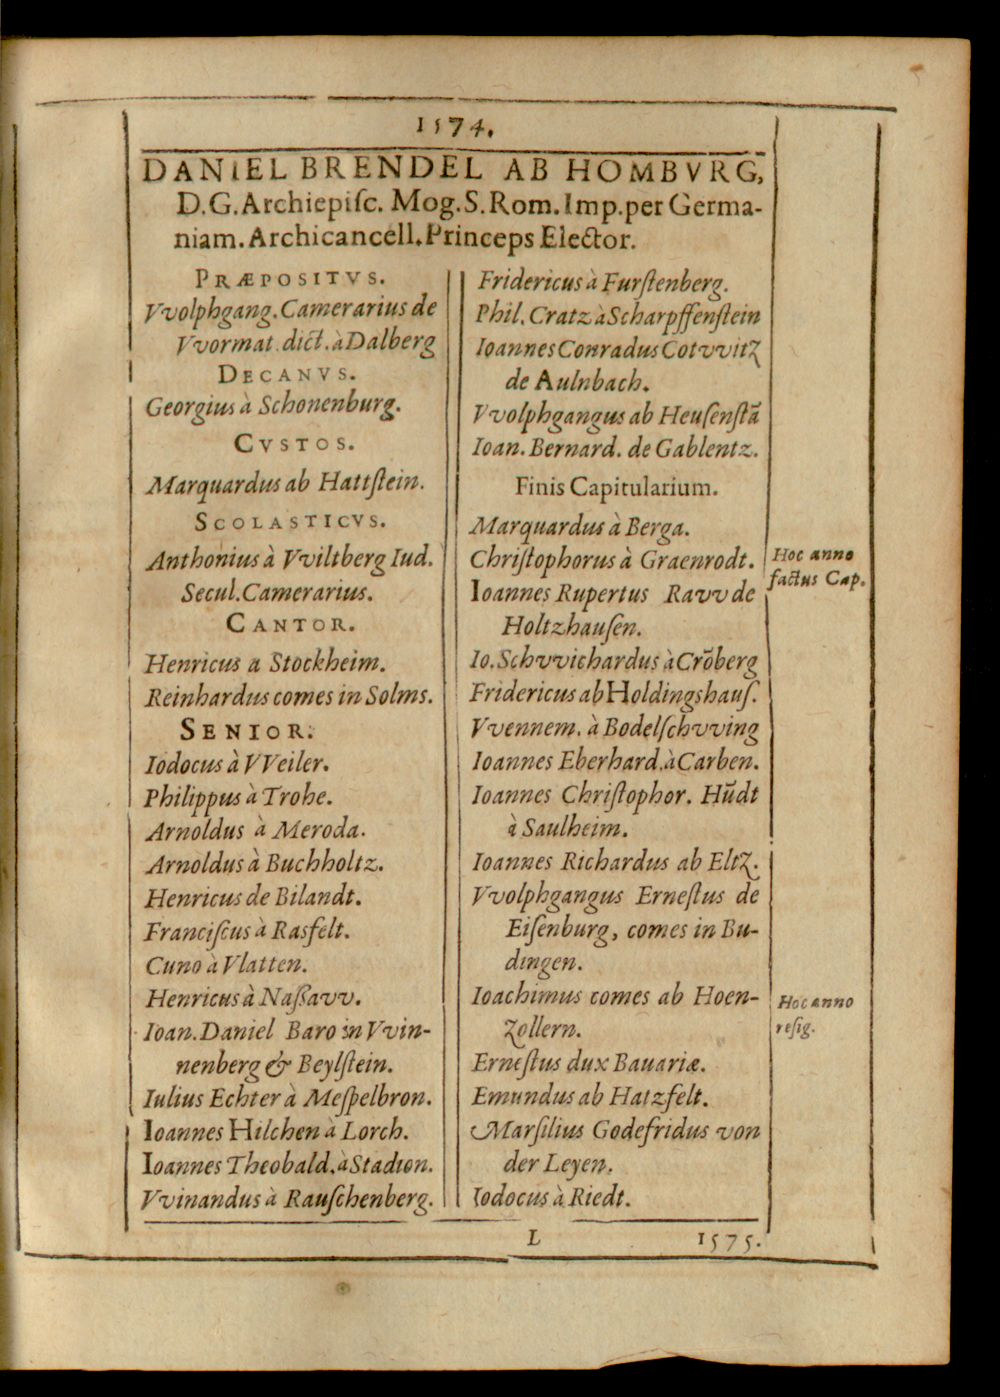 1574.
DANIEL BRENDEL AB HOMBVRG,
D.G.Archiepiſc. Mog.S.Rom.Imp.per Germa-
niam.Archicancell.Princeps Elector.
PRÆPOSITVS.
Vvolphgang.Camerarius de
Vvormat.dict.à Dalberg
DECANVS.
Georgius à Schonenburg.
CVSTOS.
Marquardus ab Hattſtein.
SCOLASTICVS.
Anthonius à Vviltberg Iud.
Secul.Camerarius.
CANTOR.
Henricus a Stockheim.
Reinhardus comes in Solms.
SENIOR.
Iodocus à VVeiler.
Philippus à Trohe.
Arnoldus à Meroda.
Arnoldus à Buchholtz.
Henricus de Bilandt.
Franciſcus à Rasfelt.
Cuno à Vlatten.
Henricus à Naßavv.
Ioan.Daniel Baro in Vvin-
nenberg & Beylſtein.
Iulius Echter à Meſpelbron.
Ioannes Hilchen à Lorch.
Ioannes Theobald.à Stadion.
Vvinandus à Rauſchenberg.
Fridericus à Furſtenberg.
Phil.Cratz à Scharpffenſtein
Ioannes Conradus Cotvvitz
de Aulnbach.
Vvolphgangus ab Heuſenſtā
Ioan.Bernard. de Gablentz.
Finis Capitularium.
Marquardus à Berga.
Chriſtophorus à Graenrodt.
Ioannes Rupertus Ravv de
Holtzhauſen.
Io.Schvvichardus à Crōberg
Fridericus ab Holdingshauſ.
Vvennem. à Bodelſchvving
Ioannes Eberhard.à Carben.
Ioannes Chriſtophor. Hūdt
à Saulheim.
Ioannes Richardus ab Eltz.
Vvolphgangus Erneſtus de
Eiſenburg, comes in Bu-
dingen.
Ioachimus comes ab Hoen-
zollern.
Erneſtus dux Bauariæ.
Emundus ab Hatzfelt.
Marſilius Godefridus von
der Leyen.
Iodocus à Riedt.
Hoc anno
factus Cap.
Hoc anno
reſig.
L 1575.